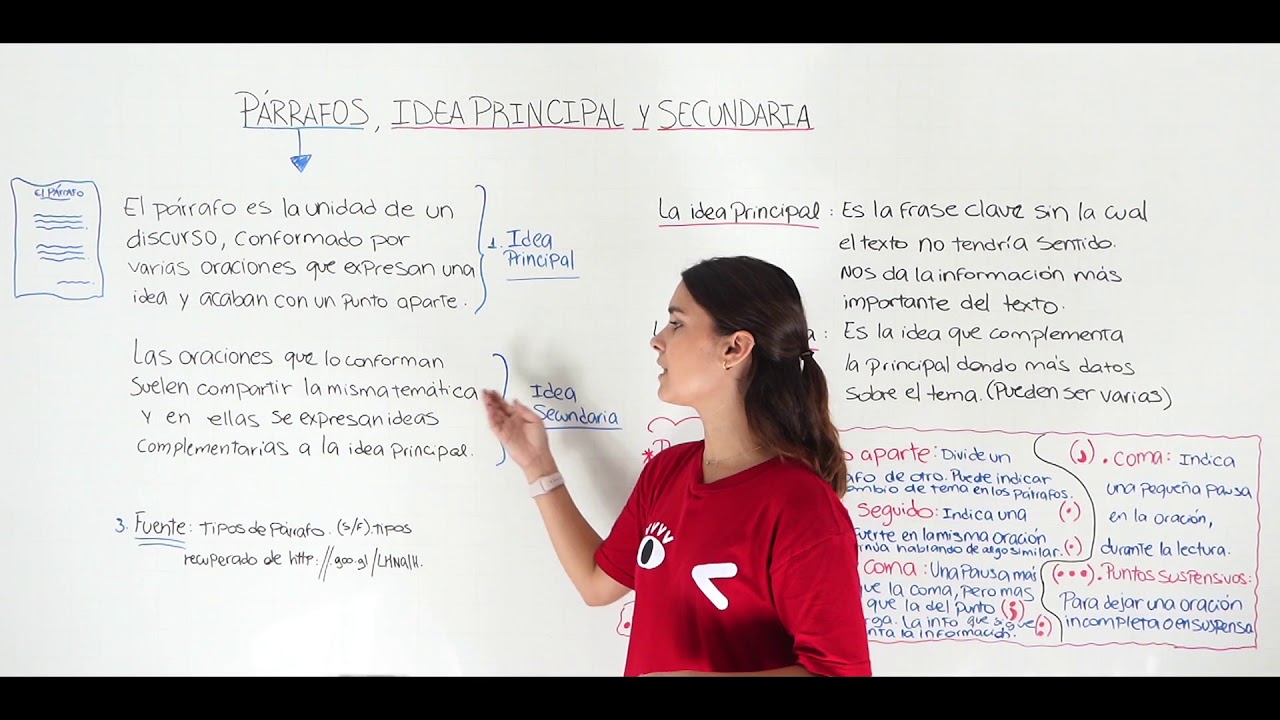 PÁRRAFOS, IDEA PRINCIPAL Y SECUNDARIA
El PÁRRAFO
El párrafo es la unidad de un
discurso, conformado por
varias oraciones que expresan una
idea y acaban con un punto aparte.
1. Idea
Principal
Las oraciones que lo conforman
suelen compartir la misma temática
y en ellas se expresan ideas
complementarias a la idea principal.
Idea
Secundaria
3. Fuente: Tipos de Párrafo. (s/f). Tipos
recuperado de http://.goo.gl/
La idea Principal: Es la frase clave sin la cual
el texto no tendría sentido.
Nos da la información más
importante del texto.
: Es la idea que complementa
la principal dando más datos
sobre el tema. (Pueden ser varias)
aparte: Divide un
de otro. Puede indicar
de tema en los párrafos.
seguido: Indica una (.)
en la misma oración
hablando de algo similar. (.)
coma: Una pausa más
que la coma, pero mas
que la del punto (;)
La info que sigue (:)
la información.
(,). coma: Indica
una pequeña pausa
en la oración,
durante la lectura.
(...). Puntos suspensivos:
Para dejar una oración
incompleta o en suspensa